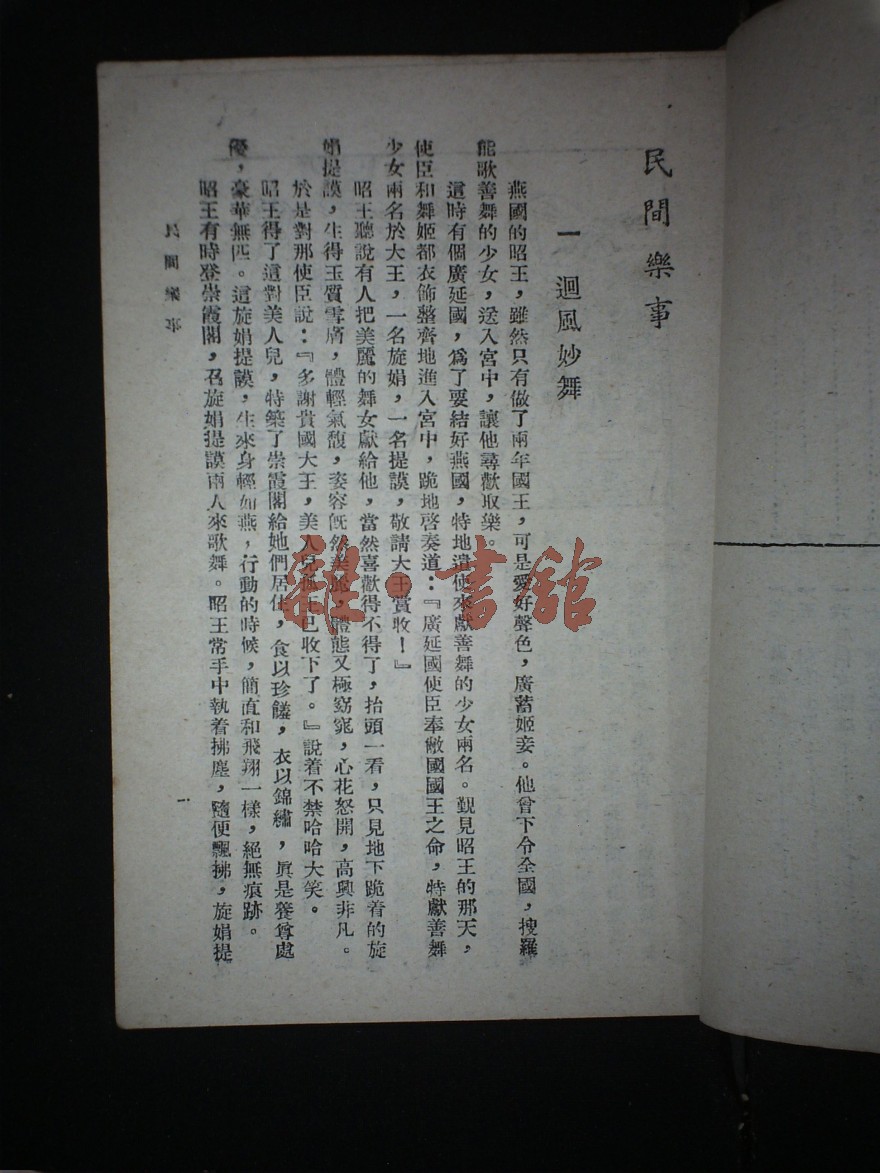 民間樂事
一 迴風妙舞
燕國的昭王，雖然只有做了兩年國王，可是愛好聲色，廣蓄姬妾。他曾下令全國，搜羅
能歌善舞的少女，送入宮中，讓他尋歡取樂。
這時有個廣延國，爲了要結好燕國，特地遣使來獻善舞的少女兩名。覲見昭王的那天，
使臣和舞姬都衣飾整齊地進入宮中，跪地啓奏道：『廣延國使臣奉敝國國王之命，特獻善舞
少女兩名於大王，一名旋娟，一名提謨，敬請大王賞收！』
昭王聽說有人把美麗的舞女獻給他，當然喜歡得不得了，抬頭一看，只見地下跪着的旋
娟提謨，生得玉質雪膚，體輕氣馥，姿容既然美，體態又極窈窕，心花怒開，高興非凡。
於是對那使臣說：『多謝貴國大王，美人兒已收下了。』說着不禁哈哈大笑。
昭王得了這對美人兒，特築了崇霞閣給她們居住，食以珍饈，衣以錦繡，眞是養尊處
優，豪華無匹。這旋娟提謨，生來身輕如燕，行動的時候，簡直和飛翔一樣，絕無痕跡。
昭王有時登崇霞閣，召旋娟提謨兩人來歌舞。昭王常手中執着拂塵，隨便飄拂，旋娟提
民間樂事
一
雜·書館